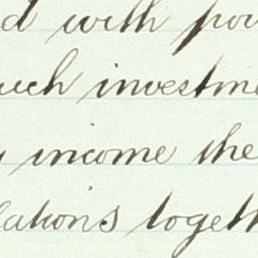 d with pow
uch investme
y income the
lations togeth